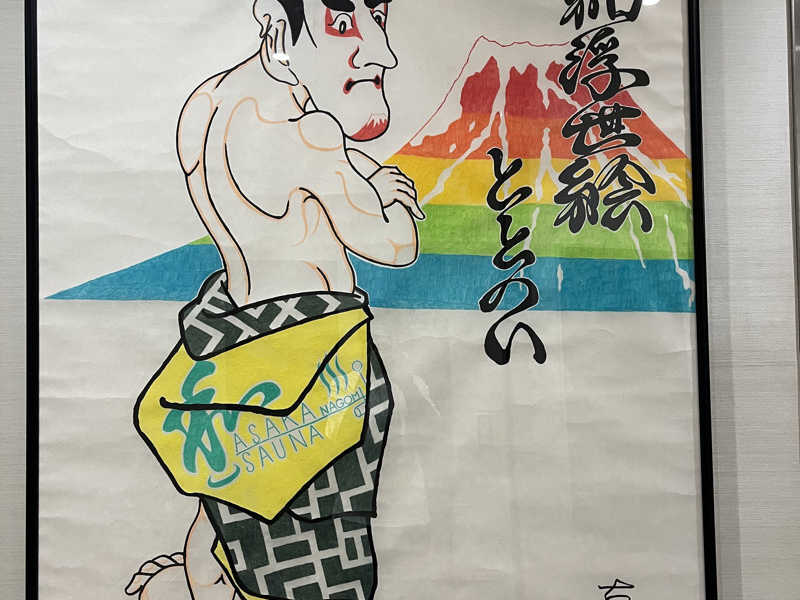 浮世絵
ととのい
和
ASAKA NAGOMI
SAUNA